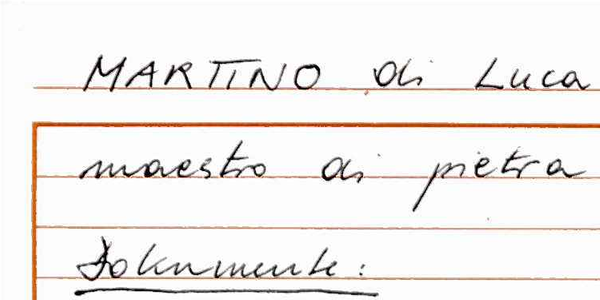 MARTINO di Luca
maestro di pietra
Dokumente: